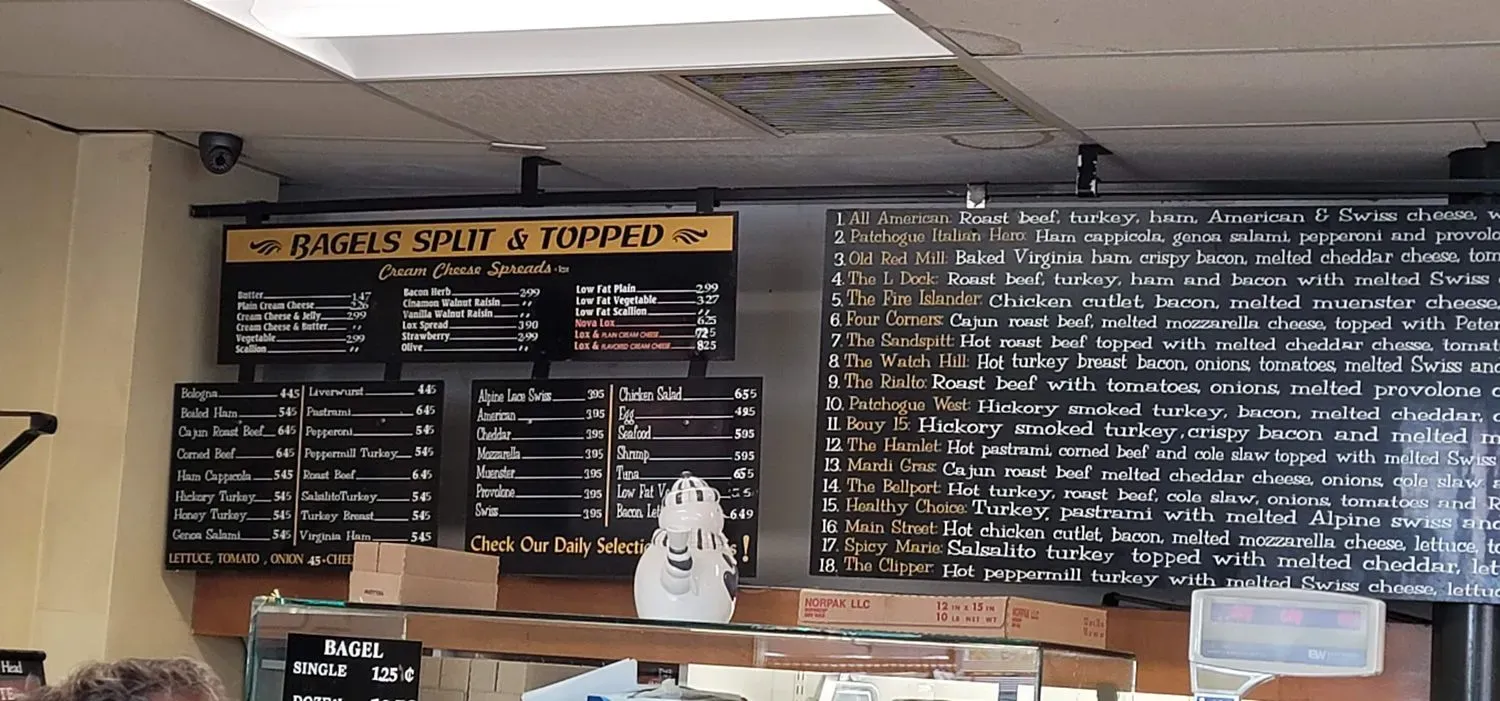 BAGELS SPLIT & TOPPED
Cream Cheese Spreads
Butter 1.47
Plain Cream Cheese
Cream Cheese & Jelly 2.99
Cream Cheese & Butter ,,
Vegetable 2.99
Scallion ,,
Bacon Herb 2.99
Cinamon Walnut Raisin ,,
Vanilla Walnut Raisin ,,
Lox Spread 3.90
Strawberry 2.99
Olive ,,
Low Fat Plain 2.99
Low Fat Vegetable 3.27
Low Fat Scallion ,,
Nova Lox 6.25
Lox & PLAIN CREAM CHEESE 7.25
Lox & FLAVORED CREAM CHEESE 8.25
Bologna 4.45
Boiled Ham 5.45
Cajun Roast Beef 6.45
Corned Beef 6.45
Ham Cappicola 5.45
Hickory Turkey 5.45
Honey Turkey 5.45
Genoa Salami 5.45
Liverwurst 4.45
Pastrami 6.45
Pepperoni 5.45
Peppermill Turkey 5.45
Roast Beef 6.45
Salsalito Turkey 5.45
Turkey Breast 5.45
Virginia Ham 5.45
LETTUCE, TOMATO , ONION 45•CHEE
Alpine Lace Swiss 3.95
American 3.95
Cheddar 3.95
Mozzarella 3.95
Muenster 3.95
Provolone 3.95
Swiss 3.95
Chicken Salad 6.55
Egg 4.95
Seafood 5.95
Shrimp 5.95
Tuna 6.55
Low Fat
Bacon, 6.49
Check Our Daily !
1. All American: Roast beef, turkey, ham, American & Swiss cheese,
2. Patchogue Italian Hero: Ham cappicola, genoa salami, pepperoni and
3. Old Red Mill: Baked Virginia ham, crispy bacon, melted cheddar cheese,
4. The L Dock: Roast beef, turkey, ham and bacon with melted Swiss
5. The Fire Islander: Chicken cutlet, bacon, melted muenster cheese,
6. Four Corners: Cajun roast beef, melted mozzarella cheese, topped with
7. The Sandspitt: Hot roast beef topped with melted cheddar chesse,
8. The Watch Hill: Hot turkey breast bacon, onions, tomatoes, melted Swiss
9. The Rialto: Roast beef with tomatoes, onions, melted provolone
10. Patchogue West: Hickory smoked turkey, bacon, melted cheddar,
11. Bouy 15: Hickory smoked turkey, crispy bacon and melted
12. The Hamlet: Hot pastrami, corned beef and cole slaw topped with melted Swiss
13. Mardi Gras: Cajun roast beef melted cheddar cheese, onions, cole slaw
14. The Bellport: Hot turkey, roast beef, cole slaw, onions, tomatoes and
15. Healthy Choice: Turkey, pastrami with melted Alpine swiss
16. Main Street: Hot chicken cutlet, bacon, melted mozzarella cheese, lettuce,
17. Spicy Marie: Salsalito turkey topped with melted cheddar,
18. The Clipper: Hot peppermill turkey with melted Swiss cheese,
NORPAK LLC
12 IN X 15 IN
10 LB NET WT
BAGEL
SINGLE 1.25 ¢
Head